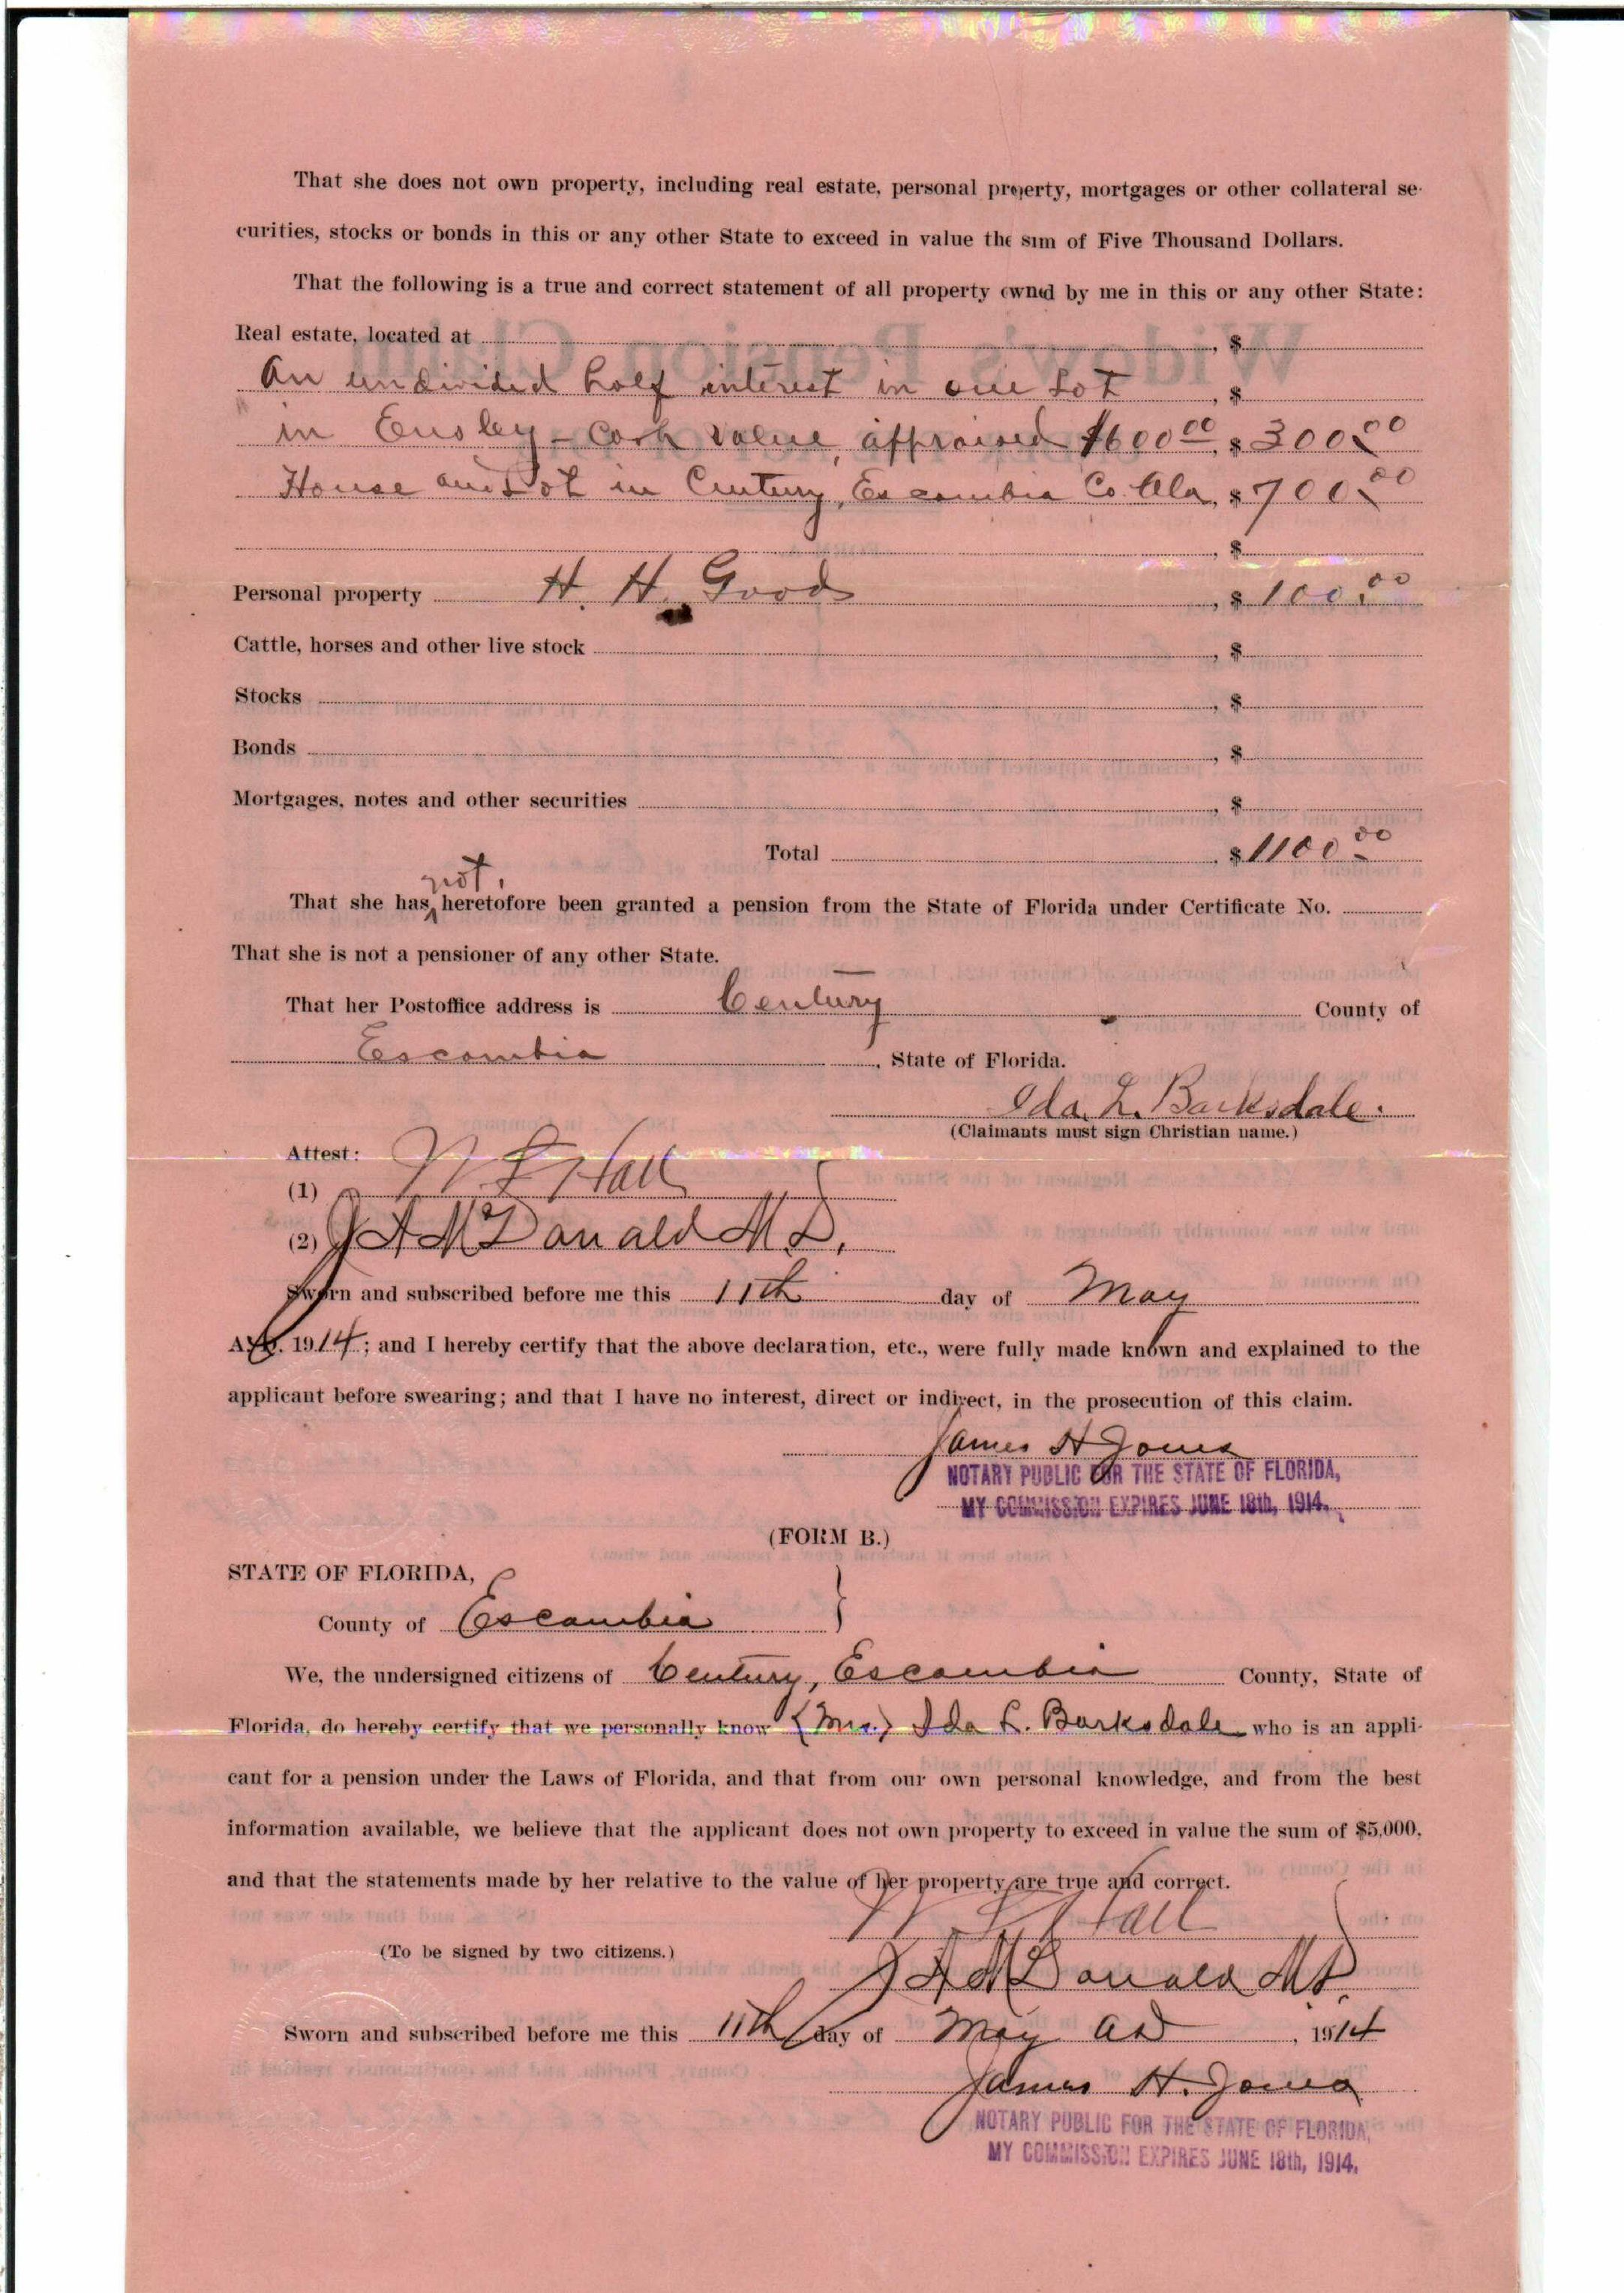 That she does not own property, including real estate, personal property, mortgages or other collateral se-
curities, stocks or bonds in this or any other State to exceed in value the sum of Five Thousand Dollars.
That the following is a true and correct statement of all property owned by me in this or any other State:
Real estate, located at , $
An undivided half interest in one Lot , $
in Ensley - Cash value, appraised $600.00, $ 300.00
House and Lot in Century, Escambia Co. Ala, $ 700.00
, $
Personal property H. H. Goods , $ 100.00
Cattle, horses and other live stock , $
Stocks , $
Bonds , $
Mortgages, notes and other securities , $
Total $1100.00
not,
That she has heretofore been granted a pension from the State of Florida under Certificate No.
That she is not a pensioner of any other State.
That her Postoffice address is Century County of
Escambia , State of Florida.
Ida L. Barksdale.
(Claimants must sign Christian name.)
Attest:
(1) Hall
(2) J A McDonald M.D.
Sworn and subscribed before me this 11th day of May
A. D. 1914; and I hereby certify that the above declaration, etc., were fully made known and explained to the
applicant before swearing; and that I have no interest, direct or indirect, in the prosecution of this claim.
James H Jones
NOTARY PUBLIC FOR THE STATE OF FLORIDA,
MY COMMISSION EXPIRES JUNE 18th, 1914.
(FORM B.)
STATE OF FLORIDA, }
County of Escambia
We, the undersigned citizens of Century, Escambia County, State of
Florida, do hereby certify that we personally know (Mrs.) Ida L. Barksdale who is an appli-
cant for a pension under the Laws of Florida, and that from our own personal knowledge, and from the best
information available, we believe that the applicant does not own property to exceed in value the sum of $5,000,
and that the statements made by her relative to the value of her property are true and correct.
Hall
(To be signed by two citizens.)
J A McDonald M.D.
Sworn and subscribed before me this 11th day of May AD , 1914
James H. Jones
NOTARY PUBLIC FOR THE STATE OF FLORIDA,
MY COMMISSION EXPIRES JUNE 18th, 1914.